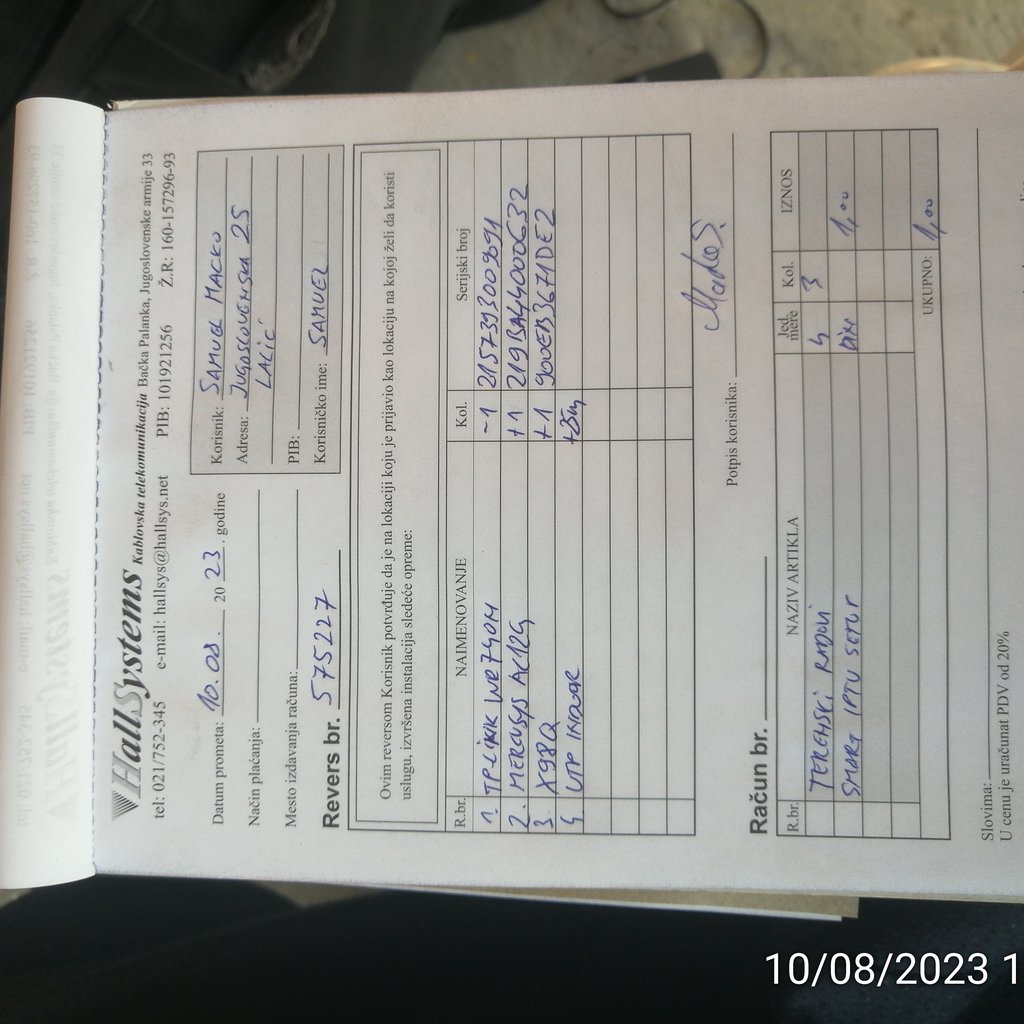 HallSystems Kablovska telekomunikacija Bačka Palanka, Jugoslovenske armije 33
tel: 021/752-345 e-mail: hallsys@hallsys.net PIB: 101921256 Ž.R: 160-157296-93
Datum prometa: 10.08. 2023. godine
Način plaćanja:
Mesto izdavanja računa:
Revers br. 575227
Korisnik: SAMUEL MACKO
Adresa: JUGOSLOVENSKA 25
LALIĆ
PIB:
Korisničko ime: SAMUEL
Ovim reversom Korisnik potvrđuje da je na lokaciji koju je prijavio kao lokaciju na kojoj želi da koristi
uslugu, izvršena instalacija sledeće opreme:
R.br. NAIMENOVANJE Kol. Serijski broj
1. TP-LINK WR740N -1 2157393009691
2. MERCUSYS AC12G +1 219BA44000632
3 X98Q +1 900EB3671DE2
4 UTP INDOOR +25m
Potpis korisnika:
Račun br.
R.br. NAZIV ARTIKLA Jed. mere Kol. IZNOS
TERENSKI RADOVI 4 3
SMART IPTV SETUP 1,00
UKUPNO: 1,00
Slovima:
U cenu je uračunat PDV od 20%
10/08/2023 1